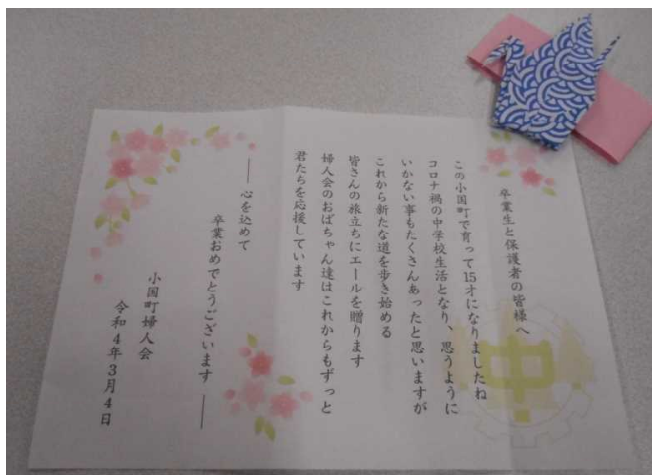 卒業生と保護者の皆様へ
この小国町で育って15才になりましたね
コロナ禍の中学校生活となり、思うように
いかない事もたくさんあったと思いますが
これから新たな道を歩き始める
皆さんの旅立ちにエールを贈ります
婦人会のおばちゃん達はこれからもずっと
君たちを応援しています
―― 心を込めて
卒業おめでとうございます ――
小国町婦人会
令和4年3月4日
中